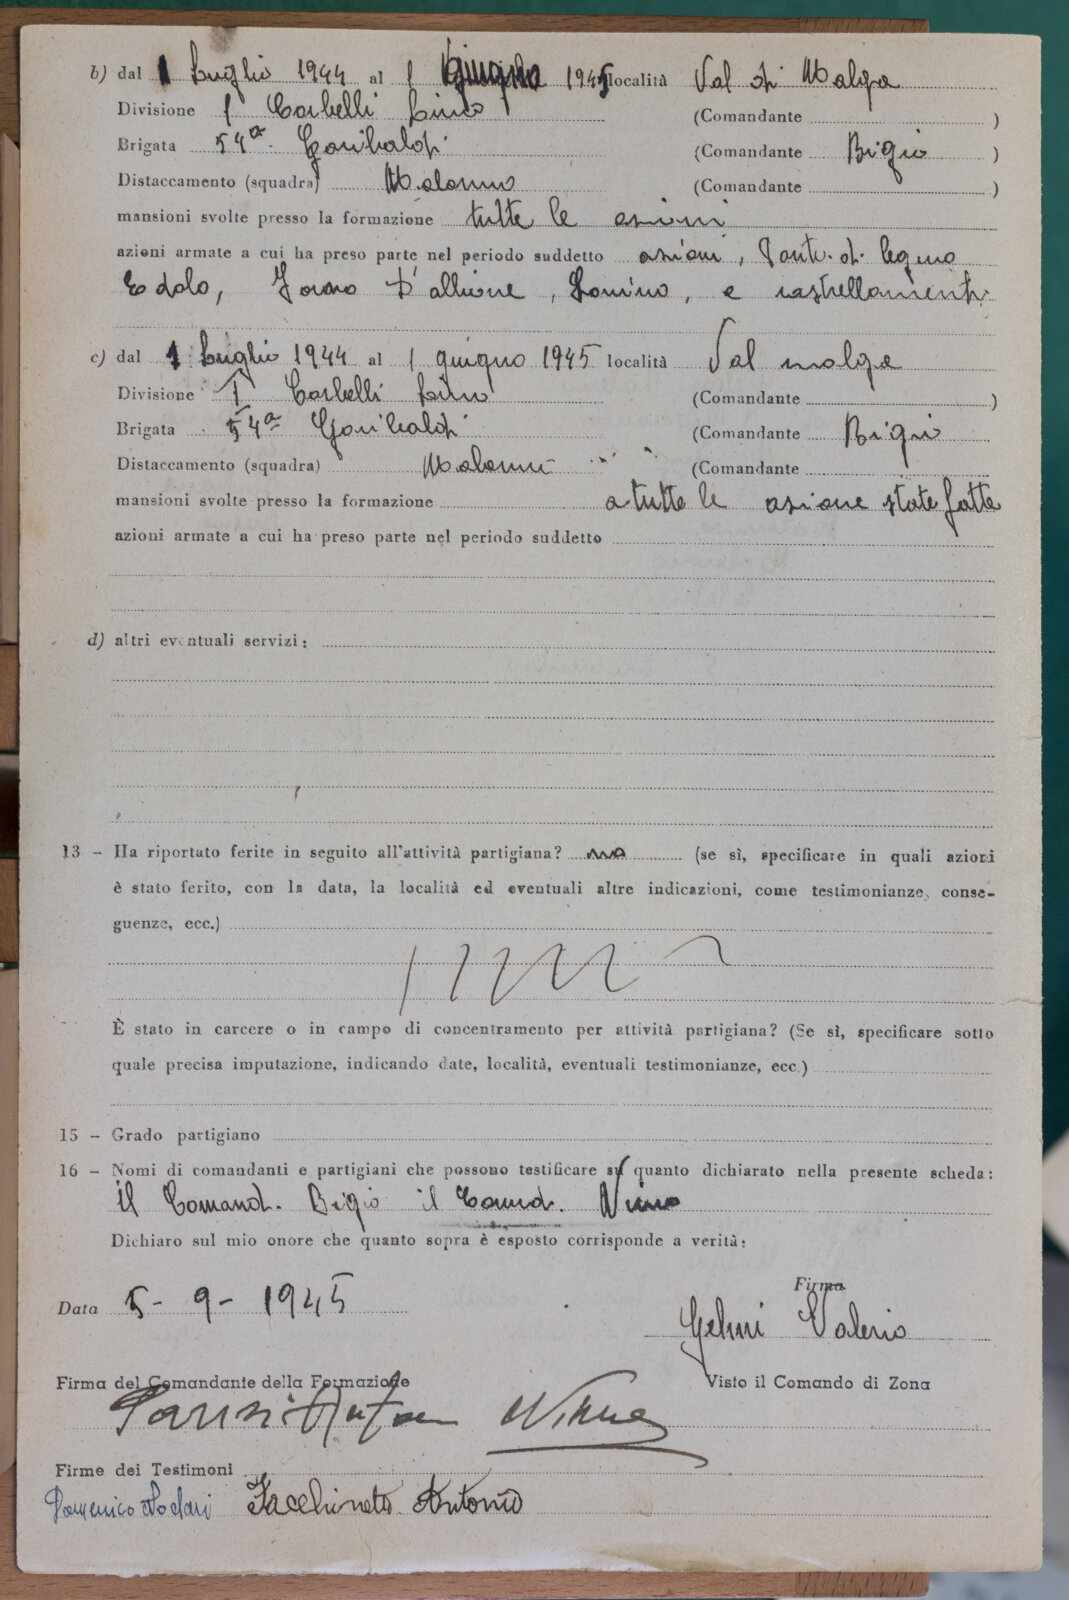 b) dal 1 Luglio 1944 al 1 giugno 1945 località Val di Malga
Divisione 1 Corbelli Lino (Comandante )
Brigata 54a Garibaldi (Comandante Bigio )
Distaccamento (squadra) Malonno (Comandante )
mansioni svolte presso la formazione tutte le azioni
azioni armate a cui ha preso parte nel periodo suddetto azioni, Ponte di legno
Edolo, Forno D'allione, e rastrellamenti
c) dal 1 Luglio 1944 al 1 giugno 1945 località Val malga
Divisione I Corbelli Lino (Comandante )
Brigata 54a Garibaldi (Comandante Bigio )
Distaccamento (squadra) Malonno (Comandante
mansioni svolte presso la formazione a tutte le azione state fatte
azioni armate a cui ha preso parte nel periodo suddetto
d) altri eventuali servizi:
13 - Ha riportato ferite in seguito all'attività partigiana? no (se sì, specificare in quali azioni
è stato ferito, con la data, la località ed eventuali altre indicazioni, come testimonianze, conse-
guenze, ecc.)
È stato in carcere o in campo di concentramento per attività partigiana? (Se sì, specificare sotto
quale precisa imputazione, indicando date, località, eventuali testimonianze, ecc.)
15 - Grado partigiano
16 - Nomi di comandanti e partigiani che possono testificare su quanto dichiarato nella presente scheda:
il Comand. Bigio il Comand. Nino
Dichiaro sul mio onore che quanto sopra è esposto corrisponde a verità:
Firma
Data 5-9-1945 Gelmi Valerio
Firma del Comandante della Formazione Visto il Comando di Zona
Nino
Firme dei Testimoni
Domenico Facchinetti Antonio